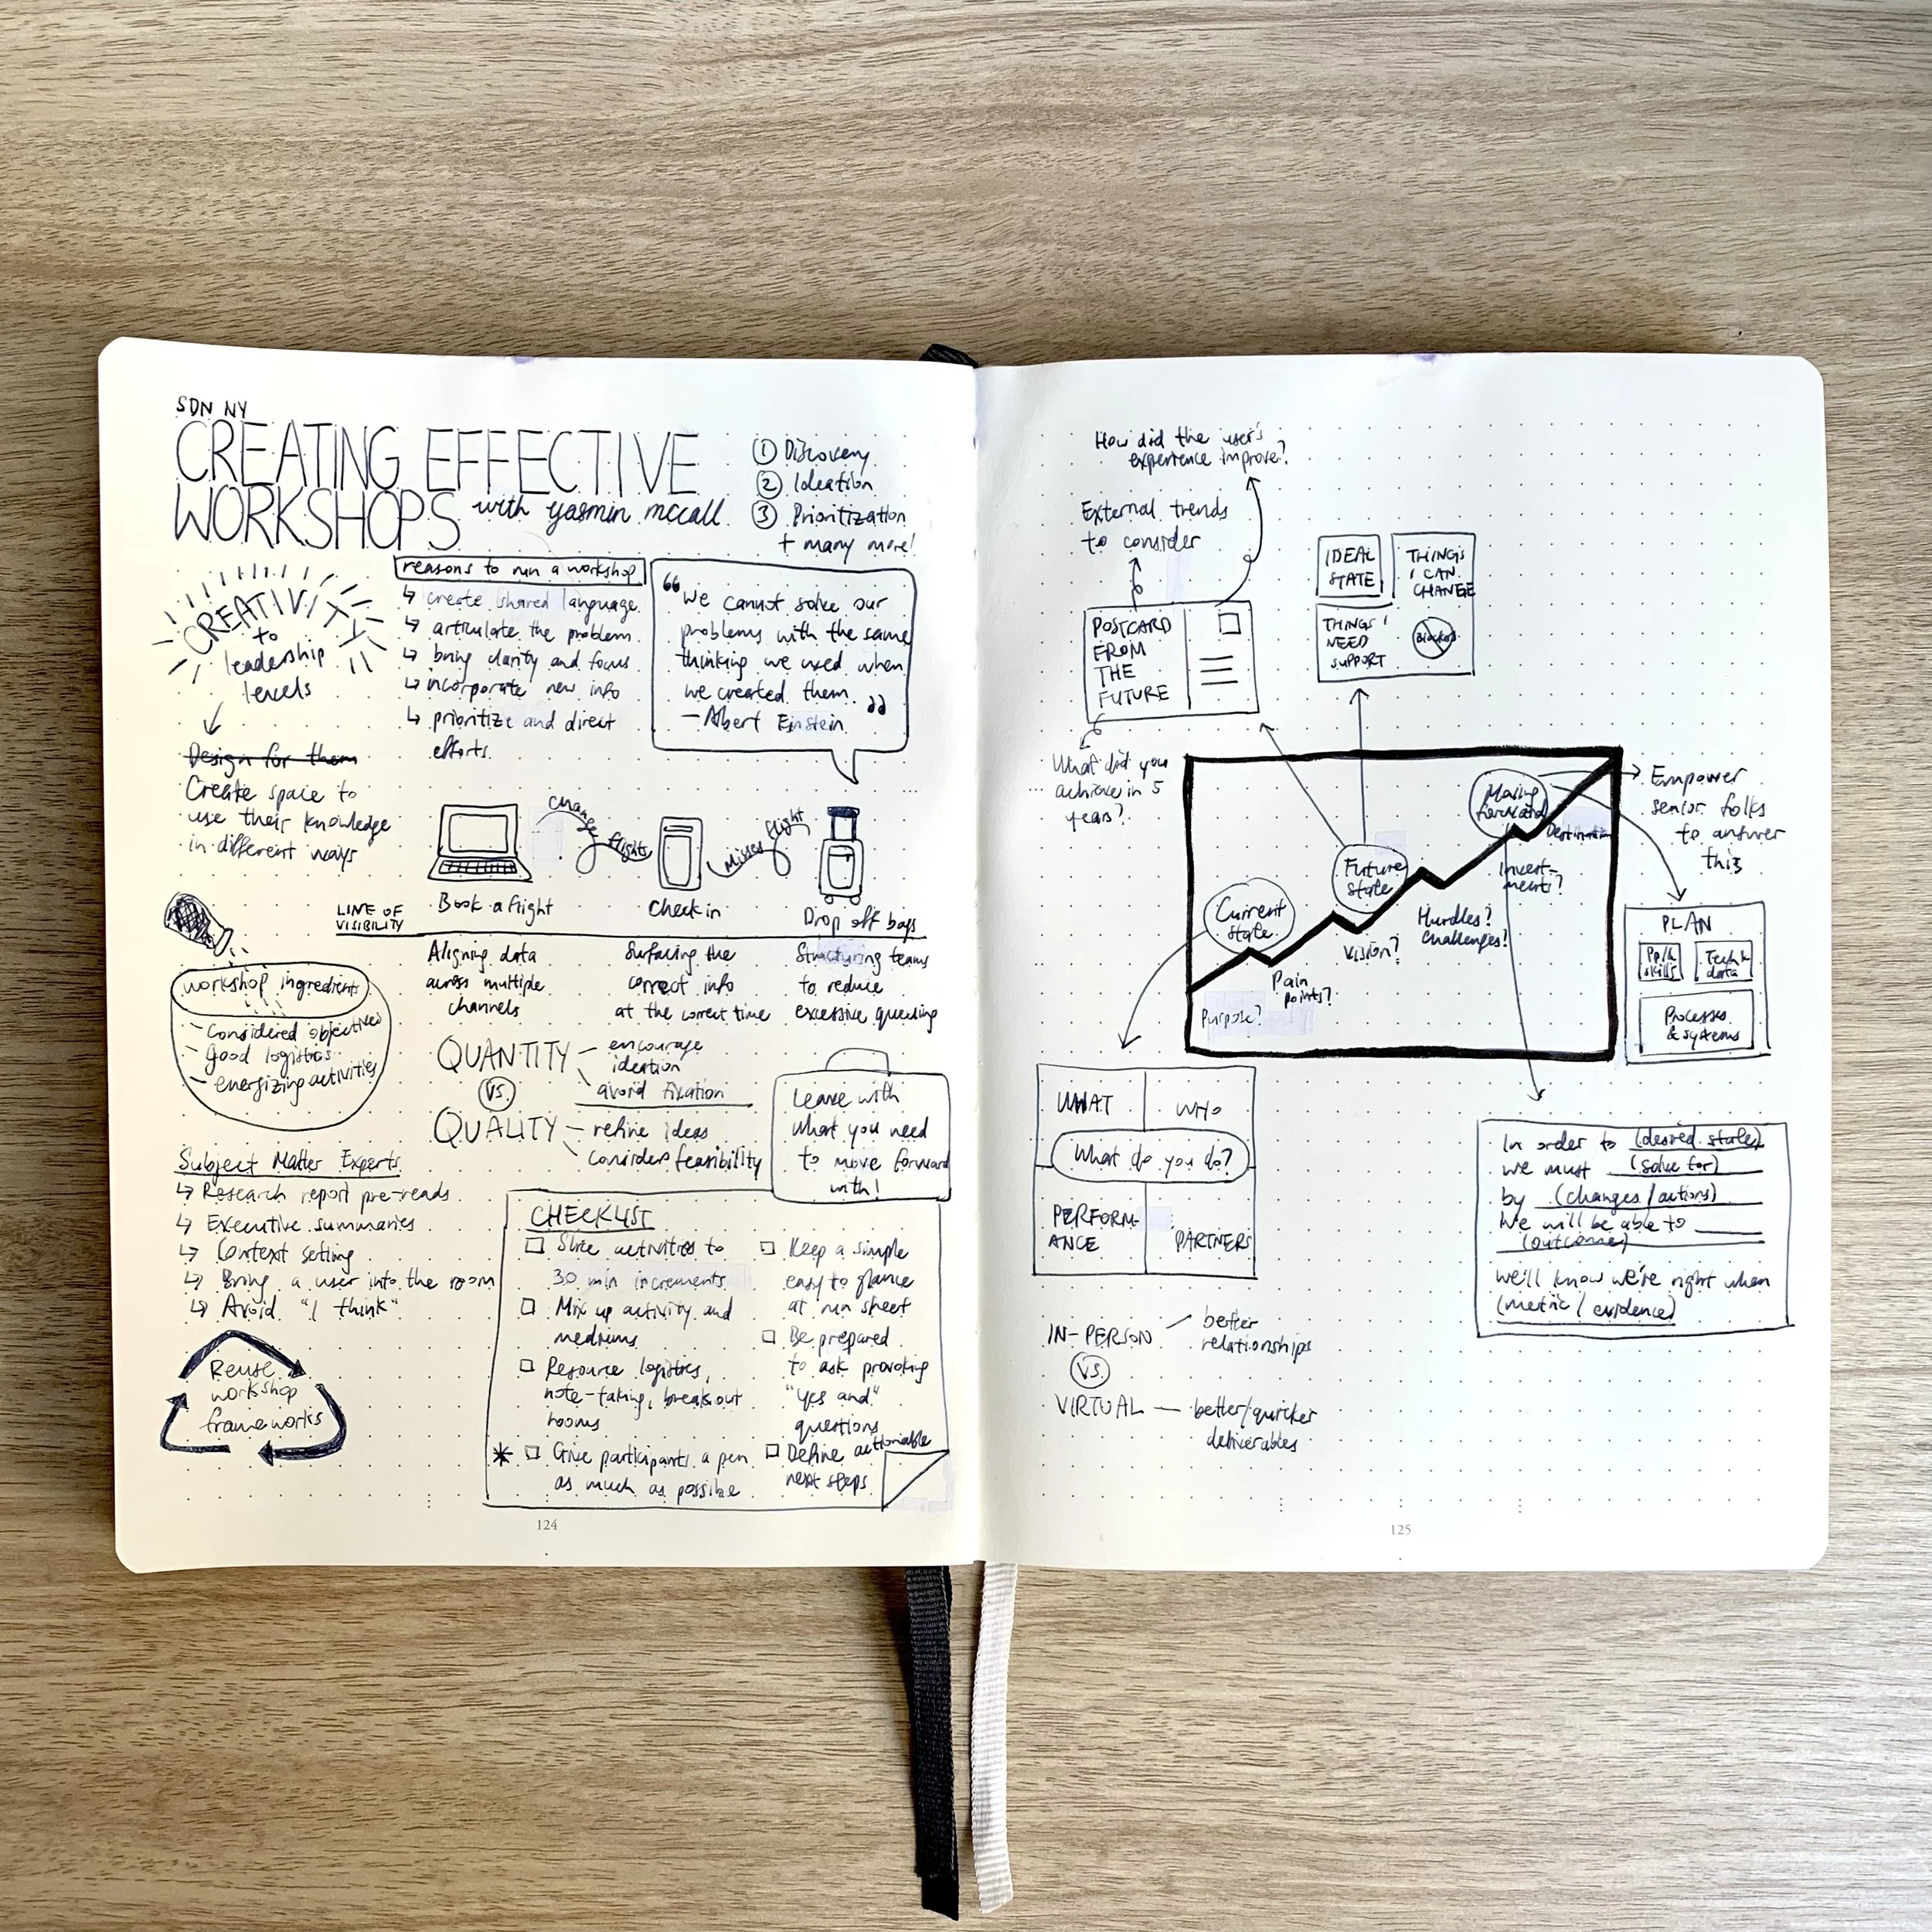 SDN NY
CREATING EFFECTIVE
WORKSHOPS with yasmin mccall
① Discovery
② Ideation
③ Prioritization
+ many more!
CREATIVITY
to
leadership
levels
Design for them
Create space to
use their knowledge
in different ways
reasons to run a workshop
↳ create shared language
↳ articulate the problem
↳ bring clarity and focus
↳ incorporate new info
↳ prioritize and direct
efforts.
“We cannot solve our
problems with the same
thinking we used when
we created them.”
— Albert Einstein
change flights
Misses flight
Book a flight
Check in
Drop off bags
LINE OF
VISIBILITY
Aligning data
across multiple
channels
Surfacing the
correct info
at the correct time
Structuring teams
to reduce
excessive queuing
workshop ingredients
- Considered objectives
- Good logistics
- energizing activities
QUANTITY
- encourage
ideation
avoid fixation
VS.
QUALITY
- refine ideas
consider feasibility
Leave with
what you need
to move forward
with!
Subject Matter Experts
↳ Research report pre-reads
↳ Executive summaries
↳ Context setting
↳ Bring a user into the room
↳ Avoid "I think"
Reuse
workshop
frameworks
CHECKLIST
□ Slice activities to
30 min increments
□ Mix up activity and
mediums
□ Resource logistics,
note-taking, breakout
rooms
* □ Give participants a pen
as much as possible
□ Keep a simple
easy to glance
at run sheet
□ Be prepared
to ask provoking
"yes and"
questions
□ Define actionable
next steps
124
How did the user's
experience improve?
External trends
to consider
POSTCARD
FROM
THE
FUTURE
What did you
achieve in 5
years?
IDEAL
STATE
THINGS
I CAN
CHANGE
THINGS I
NEED
SUPPORT
Blocked
Current
state
Future
state
Moving
forward
Destination
Purpose?
Pain
points?
Vision?
Hurdles?
Challenges?
Invest-
ments?
Empower
senior folks
to answer
this
PLAN
Ppl &
skills
Tech &
data
Processes
& systems
WHAT
WHO
What do you do?
PERFORM-
ANCE
PARTNERS
In order to (desired state)
we must (solve for)
by (changes/actions)
We will be able to
(outcomes)
We'll know we're right when
(metric/evidence)
IN-PERSON
better
relationships
VS.
VIRTUAL — better/quicker
deliverables
125